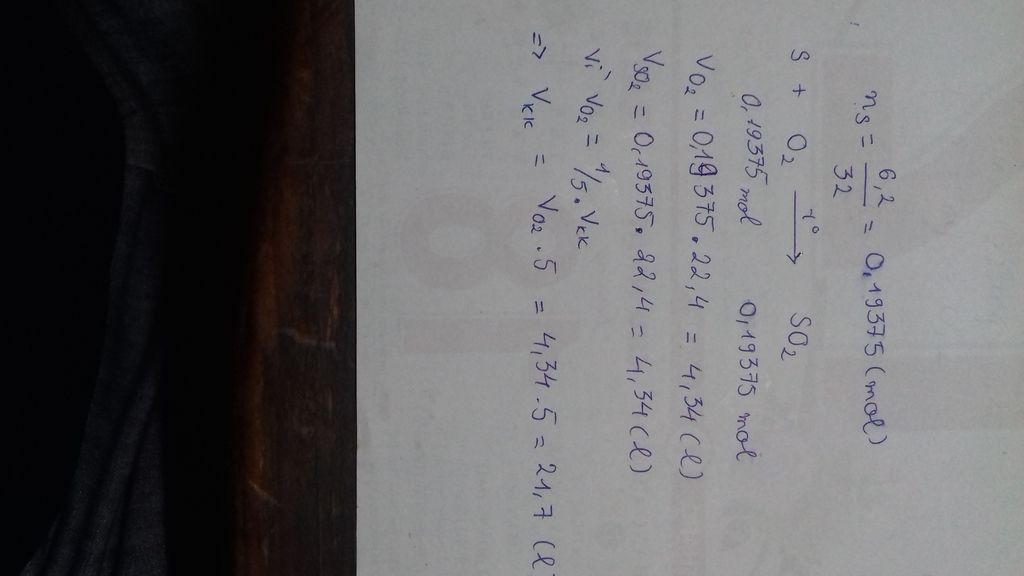 nS = 6,2/32 = 0,19375 (mol)
S + O2 t°→ SO2
0,19375 mol 0,19375 mol
VO2 = 0,19375 . 22,4 = 4,34 (l)
VSO2 = 0,19375 . 22,4 = 4,34 (l)
Vì VO2 = 1/5 . Vkk
=> Vkk = VO2 . 5 = 4,34 . 5 = 21,7 (l)